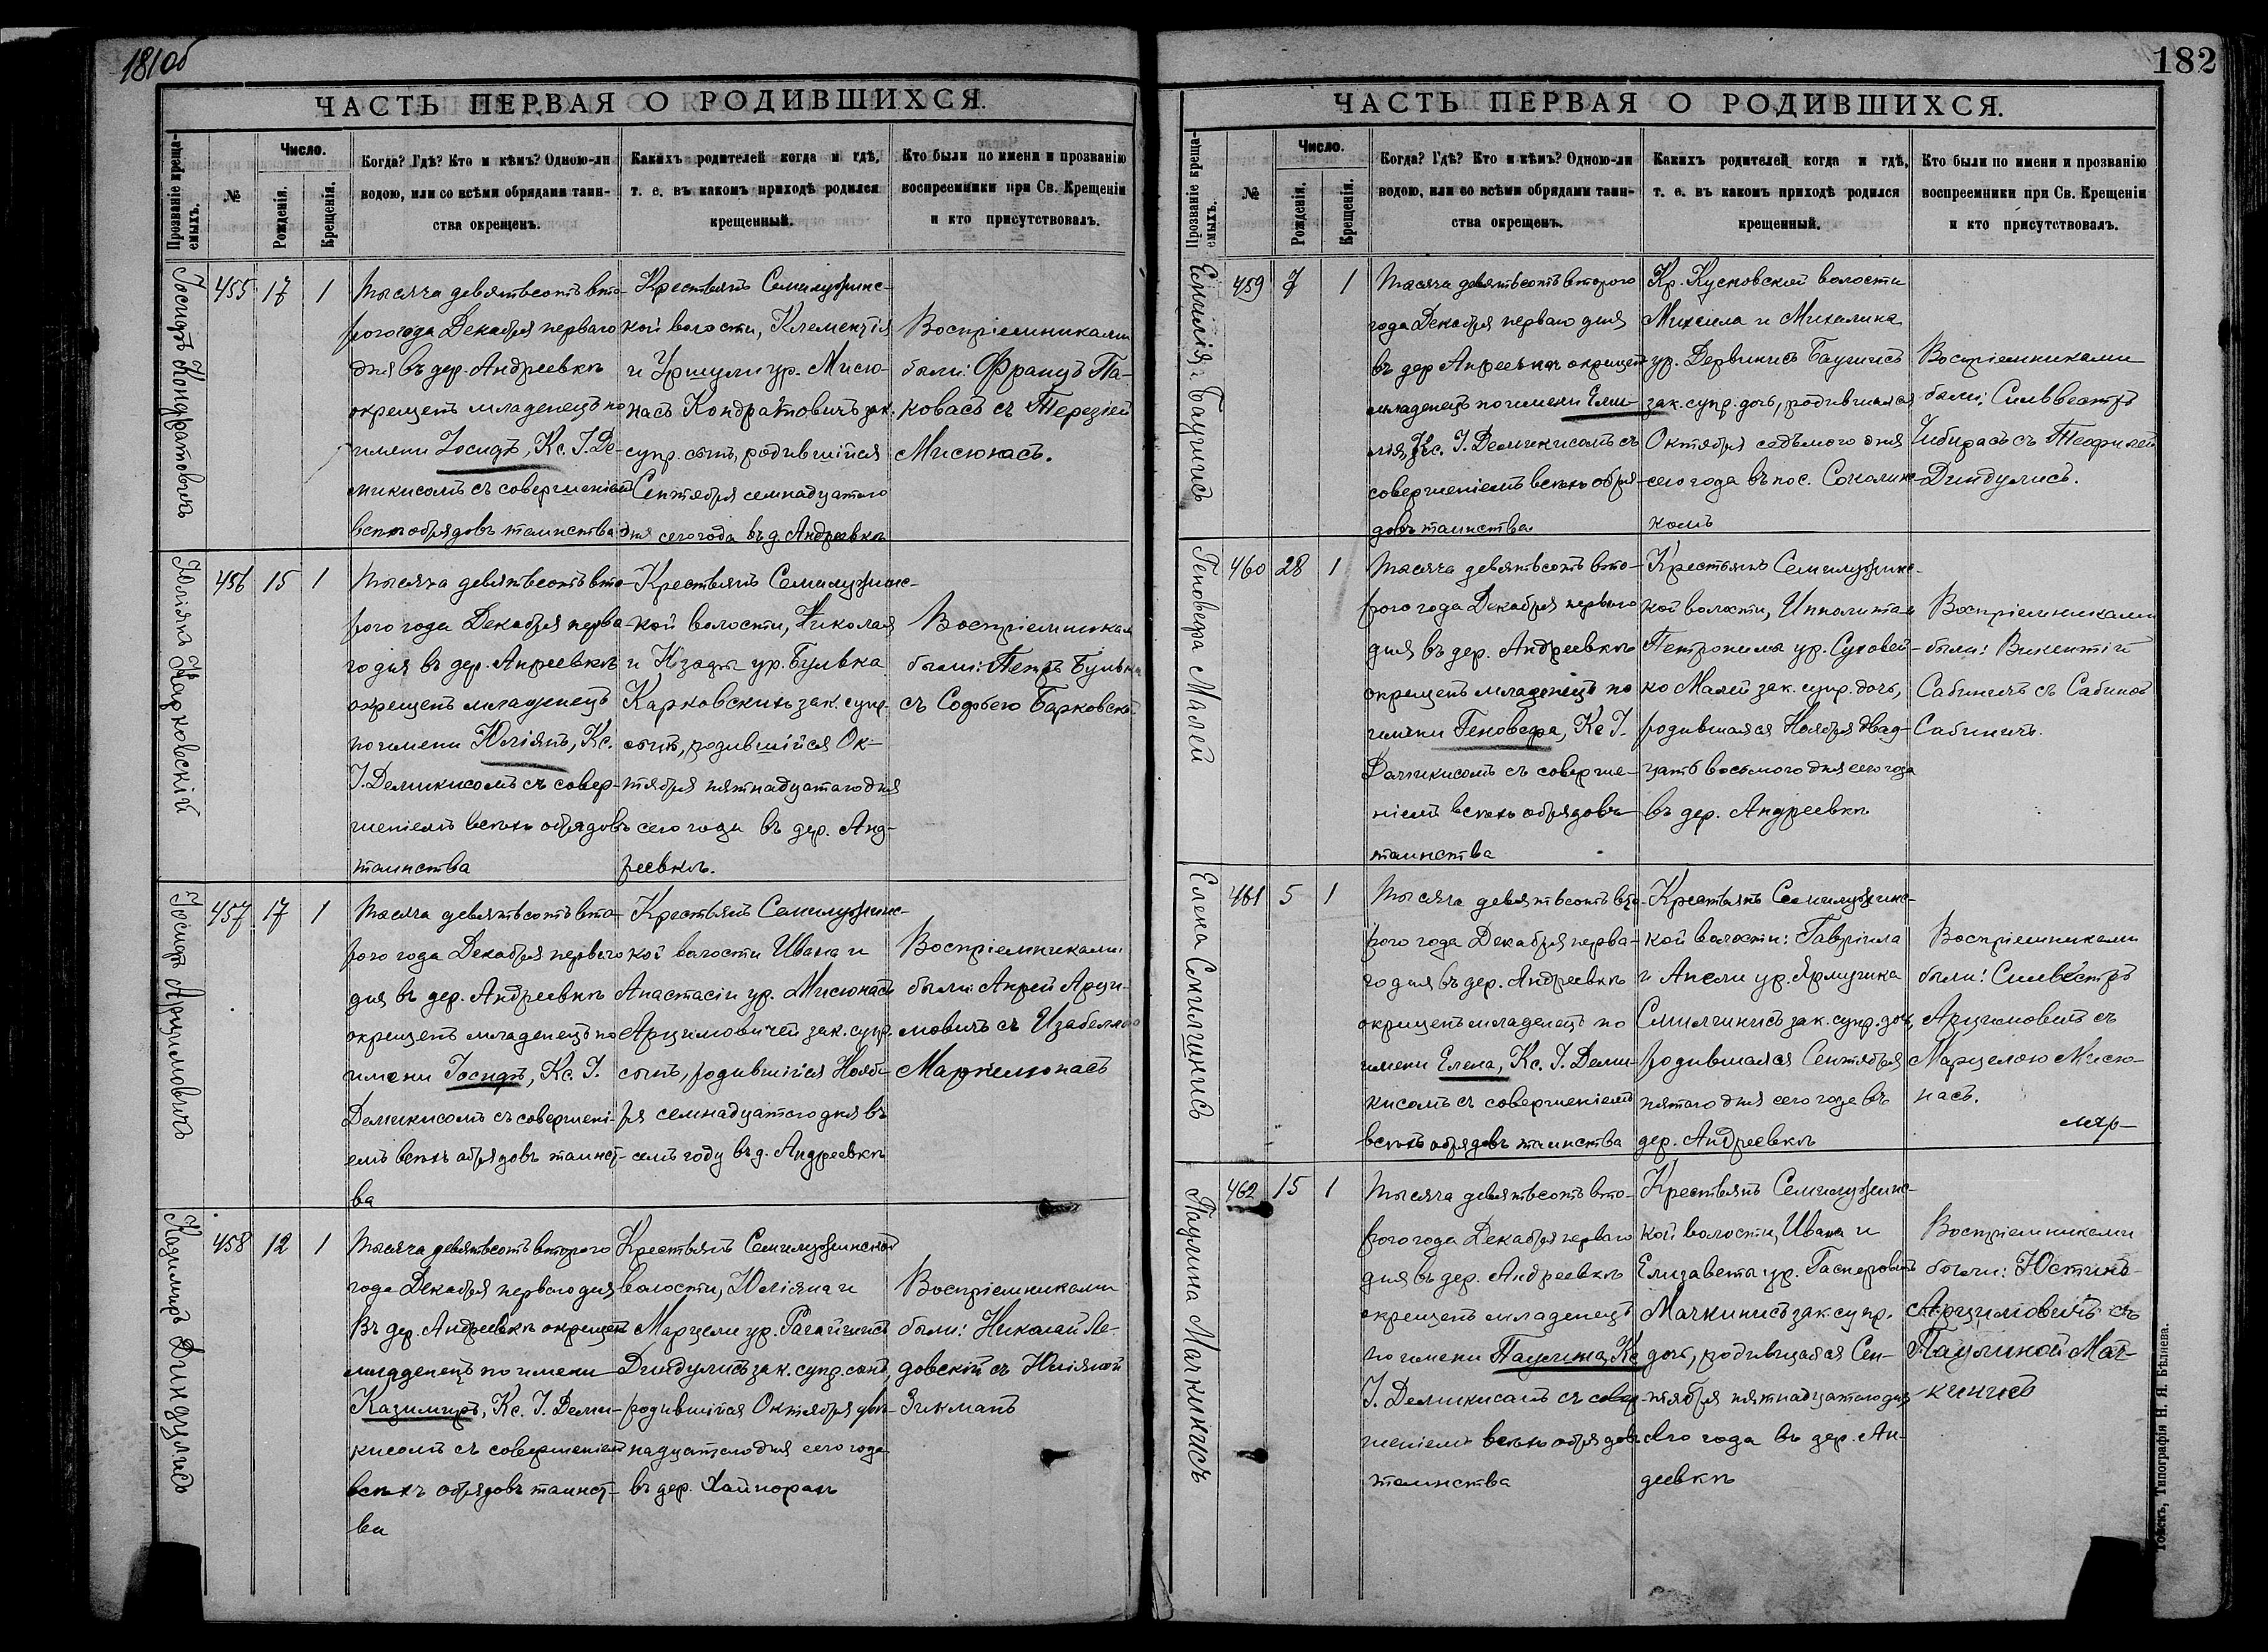 181об
ЧАСТЬ ПЕРВАЯ О РОДИВШИХСЯ.
Прозваніе креща-
емыхъ.
№
Число.
Рожденія.
Крещенія.
Когда? Гдѣ? Кто и кѣмъ? Одною-ли
водою, или со всѣми обрядами таин-
ства окрещенъ.
Какихъ родителей когда и гдѣ,
т. е. въ какомъ приходѣ родился
крещенный.
Кто были по имени и прозванію
воспреемники при Св. Крещеніи
и кто присутствовалъ.
Іосифъ Кондратовичъ
455 17 1
Тысяча девятьсотъ вто-
рого года Декабря перваго
дня въ дер. Андреевкѣ
окрещенъ младенецъ по
имени Іосифъ, Кс. І. Де-
микисомъ съ совершеніемъ
всѣхъ обрядовъ таинства
Крестьянъ Семилужинс-
кой волости, Клементія
и Уршули ур. Мисю-
насъ Кондратовичъ зак.
супр. сынъ, родившійся
Сентября семнадцатаго
дня сего года въ д. Андреевкѣ
Воспріемниками
были: Францъ Па-
ковасъ съ Терезіей
Мисюнасъ.
Юліянъ Карковскій
456 15 1
Тысяча девятьсотъ вто-
рого года Декабря перва-
го дня въ дер. Анреевкѣ
окрещенъ младенецъ
по имени Юліянъ, Кс.
І. Демикисомъ съ совер-
шеніемъ всѣхъ обрядовъ
таинства
Крестьянъ Семилужинс-
кой волости, Николая
и ур. Булвка
Карковскихъ зак. супр.
сынъ, родившійся Ок-
тября пятнадцатаго дня
сего года въ дер. Анд-
реевкѣ.
Воспріемникам
были: Петръ
съ Софьею Барковской
Іосифъ Арцимовичъ
457 17 1
Тысяча девятьсотъ вто-
рого года Декабря перваго
дня въ дер. Андреевкѣ
окрещенъ младенецъ по
имени Іосифъ, Кс. І.
Демикисомъ съ совершені-
емъ всѣхъ обрядовъ таинст-
ва
Крестьянъ Семилужинс-
кой волости Ивана и
Анастасіи ур. Мисюнасъ
Арцимовичей зак. супр.
сынъ, родившійся Нояб-
ря семнадцатаго дня въ
семъ году въ д. Андреевкѣ
Воспріемниками
были: Анрей Арци-
мовичъ съ Изабеллою
Маркелюнасъ
Казимиръ Диндулисъ
458 12 1
Тысяча девятьсотъ второго
года Декабря перваго дня
въ дер. Андреевкѣ окрещенъ
младенецъ по имени
Казимиръ, Кс. І. Деми-
кисомъ съ совершеніемъ
всѣхъ обрядовъ таинст-
ва
Крестьянъ Семилужинской
волости, Юліяна и
Марцели ур.
Диндулисъ зак. супр. сынъ,
родившійся Октября двѣ-
надцатаго дня сего года
въ дер.
Воспріемниками
были: Николай Ле-
довскій съ Юліяной
Зикманъ
182
ЧАСТЬ ПЕРВАЯ О РОДИВШИХСЯ.
Прозваніе креща-
емыхъ.
№
Число.
Рожденія.
Крещенія.
Когда? Гдѣ? Кто и кѣмъ? Одною-ли
водою, или со всѣми обрядами таин-
ства окрещенъ.
Какихъ родителей когда и гдѣ,
т. е. въ какомъ приходѣ родился
крещенный.
Кто были по имени и прозванію
воспреемники при Св. Крещеніи
и кто присутствовалъ.
Емилія Баушисъ
459 7 1
Тысяча девятьсотъ второго
года Декабря перваго дня
въ дер Анреевкѣ окрещенъ
младенецъ по имени Еми-
лія, Кс. І. Демикисомъ съ
совершеніемъ всѣхъ обря-
довъ таинства
Кр. Кусковской волости
Михаила и Михалина
ур. Дервинисъ Баушисъ
зак. супр. дочь, родившаяся
Октября седьмого дня
сего года въ пос.
Воспріемниками
были: Сильвестръ
Чибирасъ съ Теофилей
Диндулисъ.
Геновефа Малей
460 28 1
Тысяча девятьсотъ вто-
рого года Декабря перваго
дня въ дер. Андреевкѣ
окрещенъ младенецъ по
имени Геновефа, Кс І.
Демикисомъ съ соверше-
ніемъ всѣхъ обрядовъ
таинства
Крестьянъ Семилужинс-
кой волости, Ипполита и
Петронили ур. Суховей-
ко Малей зак. супр. дочь,
родившаяся Ноября двад-
цать восьмого дня сего года
въ дер. Андреевкѣ
Воспріемниками
были: Викентій
Сабиничъ съ Сабиной
Сабиничъ.
Елена Смилгинисъ
461 5 1
Тысяча девятьсотъ вто-
рого года Декабря перва-
го дня въ дер. Андреевкѣ
окрещенъ младенецъ по
имени Елена, Кс. І. Деми-
кисомъ съ совершеніемъ
всѣхъ обрядовъ таинства
Крестьянъ Семилужинс-
кой волости: Гавріила
и Анели ур. Ярмушка
Смилгинисъ зак. супр. дочь,
родившаяся Сентября
пятаго дня сего года въ
дер. Андреевкѣ
Воспріемниками
были: Сильвестръ
Арцимовичъ съ
Марцелою Мисю-
насъ.
Паулина Мачкинисъ
462 15 1
Тысяча девятьсотъ вто-
рого года Декабря перваго
дня въ дер. Андреевкѣ
окрещенъ младенецъ
по имени Паулина, Кс
І. Демикисомъ съ совер-
шеніемъ всѣхъ обрядовъ
таинства
Крестьянъ Семилужинс-
кой волости, Ивана и
Елизаветы ур. Гасперовичъ
Мачкинисъ зак. супр.
дочь, родившаяся Сен-
тября пятнадцатаго дня
сего года въ дер. Ан-
деевкѣ
Воспріемниками
были: Юстинъ
Арцимовичъ съ
Паулиной Мач-
кинисъ
Томскъ, Типографія Н. Я. Бѣляева.